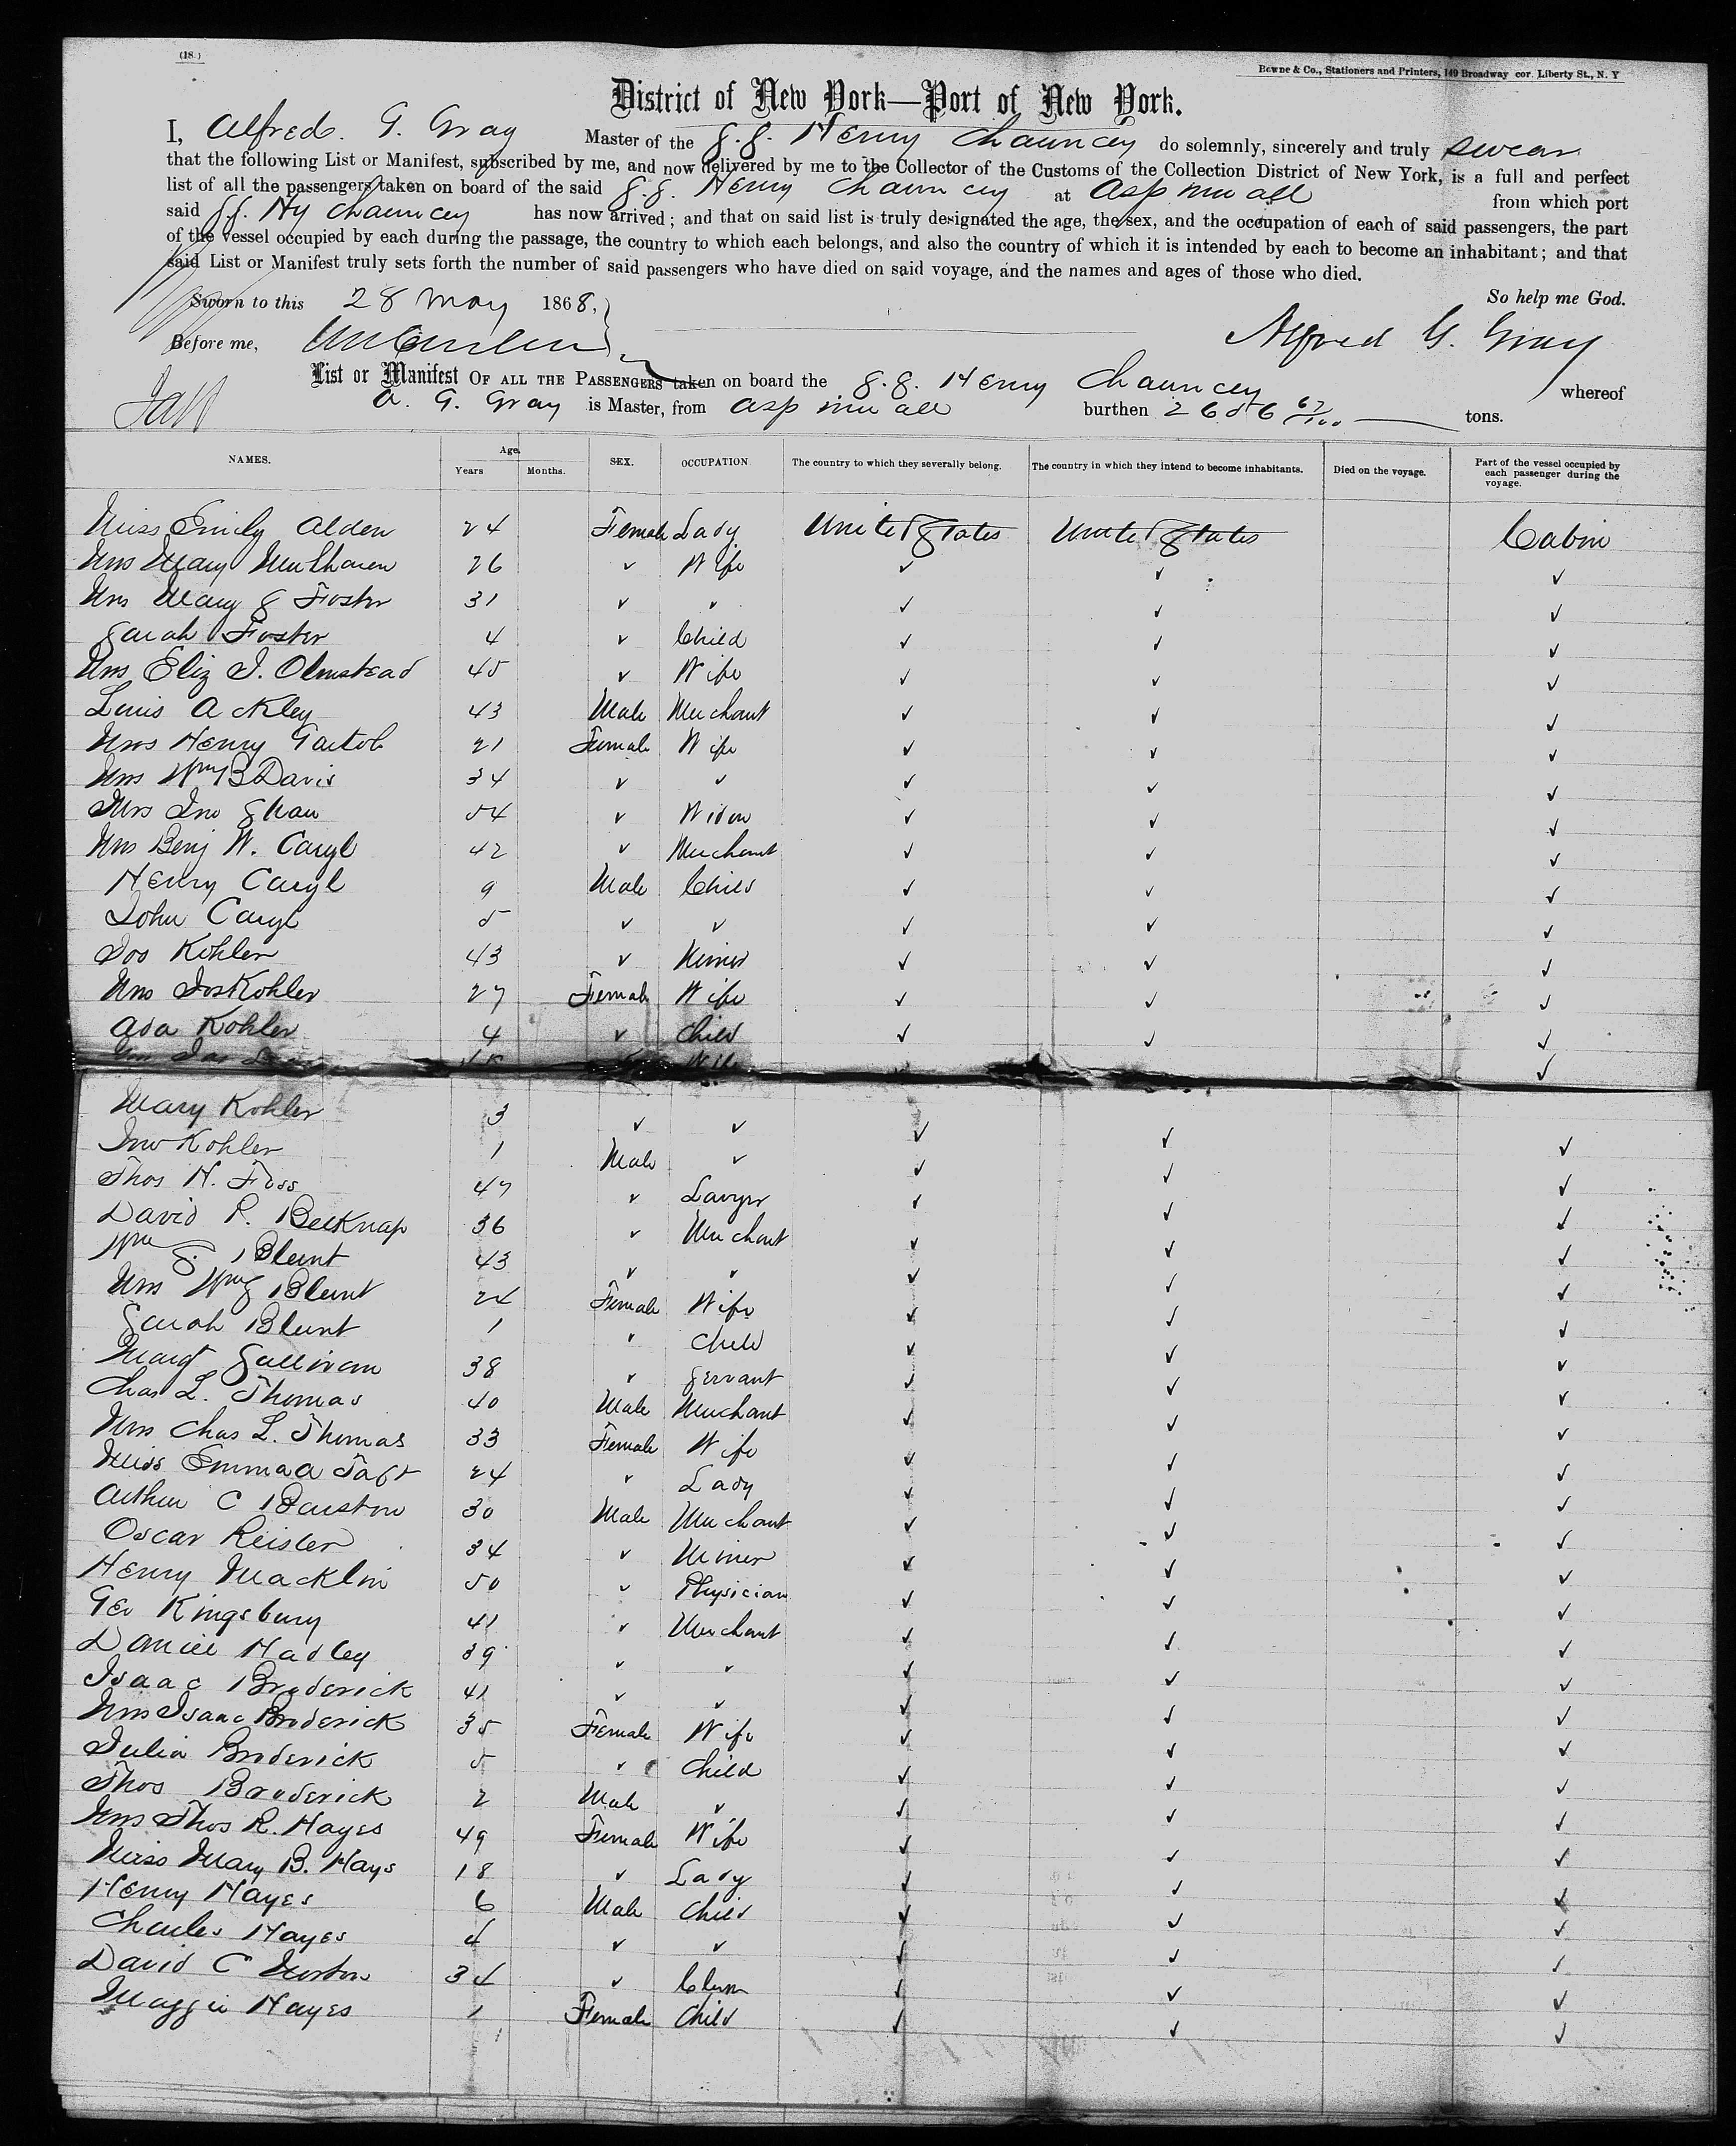 (18.)
Bowne & Co., Stationers and Printers, 149 Broadway cor. Liberty St., N. Y
District of New York—Port of New York.
I, Alfred. G. Gray Master of the S.S. Henry Chauncey do solemnly, sincerely and truly swear
that the following List or Manifest, subscribed by me, and now delivered by me to the Collector of the Customs of the Collection District of New York, is a full and perfect
list of all the passengers taken on board of the said S.S. Henry Chauncey at Aspinwall from which port
said S.S. Hy Chauncey has now arrived; and that on said list is truly designated the age, the sex, and the occupation of each of said passengers, the part
of the vessel occupied by each during the passage, the country to which each belongs, and also the country of which it is intended by each to become an inhabitant; and that
said List or Manifest truly sets forth the number of said passengers who have died on said voyage, and the names and ages of those who died.
Sworn to this 28 May 1868, So help me God.
Before me, Alfred G. Gray
List or Manifest OF ALL THE PASSENGERS taken on board the S.S. Henry Chauncey whereof
A. G. Gray is Master, from Aspinwall burthen 2656 67/100 tons.
NAMES. Age. Years Months. SEX. OCCUPATION. The country to which they severally belong. The country in which they intend to become inhabitants. Died on the voyage. Part of the vessel occupied by each passenger during the voyage.
Miss Emily Alden 24 Female Lady United States United States Cabin
Mrs Mary 26 ✓ Wife ✓ ✓ ✓
Mrs Mary S Foster 31 ✓ ✓ ✓ ✓ ✓
Sarah Foster 4 ✓ Child ✓ ✓ ✓
Mrs Eliz J. Olmstead 45 ✓ Wife ✓ ✓ ✓
Louis Ackley 43 Male Merchant ✓ ✓ ✓
Mrs Henry 21 Female Wife ✓ ✓ ✓
Mrs Wm B Davis 34 ✓ ✓ ✓ ✓ ✓
Mrs Jno Shaw 54 ✓ Widow ✓ ✓ ✓
Mrs Benj W. Caryl 42 ✓ Merchant ✓ ✓ ✓
Henry Caryl 9 Male Child ✓ ✓ ✓
John Caryl 5 ✓ ✓ ✓ ✓ ✓
Jos Kohler 43 ✓ Miner ✓ ✓ ✓
Mrs Jos Kohler 27 Female Wife ✓ ✓ ✓
Ada Kohler 4 ✓ Child ✓ ✓ ✓
Mary Kohler 3 ✓ ✓ ✓ ✓ ✓
Jno Kohler 1 Male ✓ ✓ ✓ ✓
Thos H. Foss 47 ✓ Lawyer ✓ ✓ ✓
David P. Belknap 36 ✓ Merchant ✓ ✓ ✓
Wm S. Blunt 43 ✓ ✓ ✓ ✓ ✓
Mrs Wm S Blunt 24 Female Wife ✓ ✓ ✓
Sarah Blunt 1 ✓ Child ✓ ✓ ✓
Margt Sullivan 38 ✓ Servant ✓ ✓ ✓
Chas L. Thomas 40 Male Merchant ✓ ✓ ✓
Mrs Chas L. Thomas 33 Female Wife ✓ ✓ ✓
Miss Emma A Taft 24 ✓ Lady ✓ ✓ ✓
Arthur C 30 Male Merchant ✓ ✓ ✓
Oscar Reisler 34 ✓ Miner ✓ ✓ ✓
Henry Macklin 50 ✓ Physician ✓ ✓ ✓
Geo Kingsbury 41 ✓ Merchant ✓ ✓ ✓
Daniel Hadley 39 ✓ ✓ ✓ ✓ ✓
Isaac Broderick 41 ✓ ✓ ✓ ✓ ✓
Mrs Isaac Broderick 35 Female Wife ✓ ✓ ✓
Julia Broderick 5 ✓ Child ✓ ✓ ✓
Thos Broderick 2 Male ✓ ✓ ✓ ✓
Mrs Thos R. Hayes 49 Female Wife ✓ ✓ ✓
Miss Mary B. Hays 18 ✓ Lady ✓ ✓ ✓
Henry Hayes 6 Male Child ✓ ✓ ✓
Charles Hayes 4 ✓ ✓ ✓ ✓ ✓
David C 34 ✓ ✓ ✓ ✓
Maggie Hayes 1 Female Child ✓ ✓ ✓